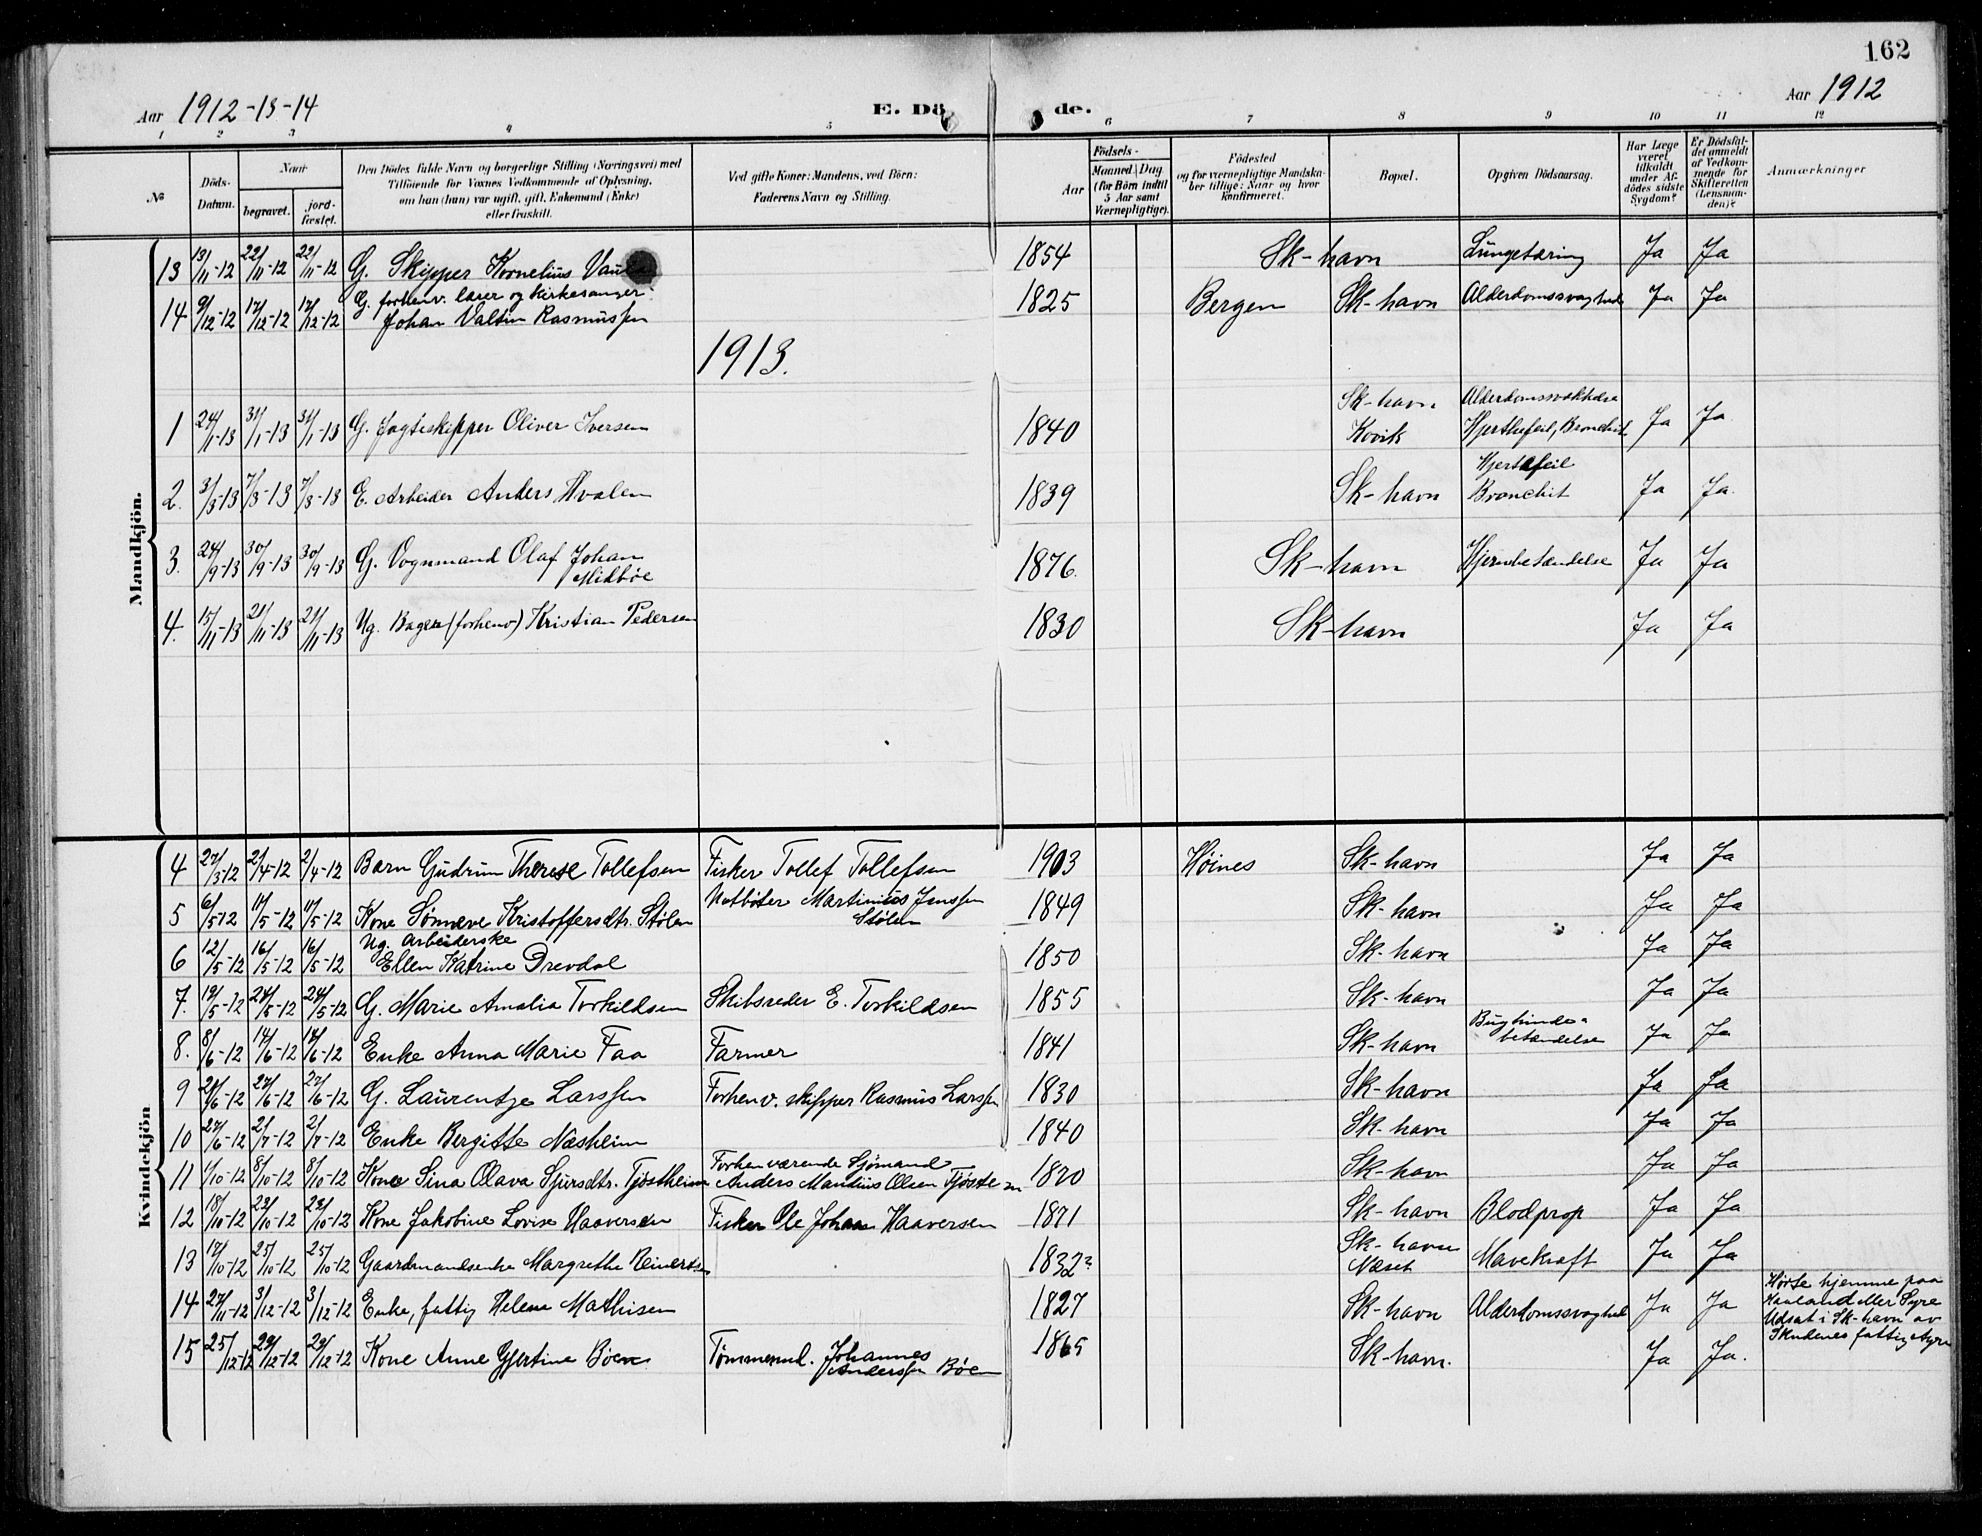 162
Aar 1912-13-14
E. Dö de.
Aar 1912
1 2 3 4 5 6 7 8 9 10 11 12
№
Döds-Datum.
Naar
begravet.
jord-fæstet.
Den Dödes fulde Navn og borgerlige Stilling (Næringsvei) med
Tilföiende for Voxnes Vedkommende af Oplysning,
om han (hun) var ugift, gift, Enkemand (Enke)
eller fraskilt.
Ved gifte Koner: Mandens, ved Börn:
Faderens Navn og Stilling.
Aar
Födsels-
Maaned. Dag.
(for Börn indtil
5 Aar samt
Værnepligtige).
Födested
og for værnepligtige Mandska-
ber tillige: Naar og hvor
konfirmeret.
Bopæl.
Opgiven Dödsaarsag.
Har Læge
været
tilkaldt
under Af-
dödes sidste
Sygdom?
Er Dödsfal-
det anmeldt
af Vedkom-
mende for
Skifteretten
(Lensman-
den)?
Anmærkninger
Mandkjön.
13 13/11-12 22/11-12 22/11-12 G. Skipper Kornelius 1854 Sk-havn Lungetæring Ja Ja
14 9/12-12 17/12-12 17/12-12 G. forhenv. lærer og kirkesanger 1825 Bergen Sk-havn Alderdomssvaghed Ja Ja
Johan Valtin Rasmussen
1913.
1 24/1-13 31/1-13 31/1-13 G. Jagtskipper Oliver Iversen 1840 Sk-havn Kovik Alderdomssvakhælse Hjerthefeil, Bronchit Ja Ja
2. 3/3-13 7/3-13 7/3-13 E. Arbeider Anders Hvalen 1839 Sk-havn Hjertefeil Bronchit Ja Ja.
3. 24/9-13 30/9-13 30/9-13 G. Vognmand Olaf Johan 1876. Sk-havn Hjernebetændelse Ja Ja
Midbøe
4. 15/11-13 21/11-13 21/11-13 Ug. Bager (forhenv) Kristian Pedersen 1830 Sk-havn Ja Ja
Kvindekjön
4 27/3-12 2/4-12 2/4-12 Barn Gudrun Therese Tollefsen Fisker Tollef Tollefsen 1903 Høines Sk-havn Ja Ja
5 6/5-12 11/5-12 11/5-12 Kone Sønneve Kristoffersdtr. Stølen Notbøter Martinius Jenssen Stølen 1849 Sk-havn Ja Ja
6 12/5-12 16/5-12 16/5-12 Ug. Arbeiderske 1850 Sk-havn Ja Ja
Ellen Katrine Drevdal
7. 19/5-12 24/5-12 24/5-12 G. Marie Amalia Torkildsen Skibsreder E. Torkildsen 1855 Sk-havn Ja Ja
8. 8/6-12 14/6-12 14/6-12 Enke Anna Marie Faa Farmer 1841 Sk-havn Bughinde-betændelse Ja Ja
9 21/6-12 27/6-12 27/6-12 G. Laurentze Larssen Forhenv. skipper Rasmus Larssen 1830 Sk-havn Ja Ja
10 27/6-12 2/7-12 2/7-12 Enke Bergitte Næsheim 1840 Sk-havn Ja Ja
11 1/10-12 8/10-12 8/10-12 Kone Sina Olava Sjursdtr. Tjøstheim Forhenværende Sjømand Anders Mandius Olsen 1870 Sk-havn Ja Ja
12 18/10-12 23/10-12 23/10-12 Kone Jakobine Lovise Haaversen Fisker Ole Johan Haaversen 1871 Sk-havn Blodprop Ja Ja
13 17/10-12 25/10-12 25/10-12 Gaardmandsenke Margrethe Reinertsen 1832? Sk-havn Næset Mavekræft Ja Ja
14 27/11-12 3/12-12 3/12-12 Enke, fattig Helene Mathisen 1827 Sk-havn Alderdomssvaghed Ja Ja Hørte hjemme paa
eller Syre
Udsat i Sk-havn av
Skudenes fattig styre
15 25/12-12 29/12-12 29/12-12 Kone Anne Gjertine Bøen Tømmermd. Johannes Anderssen Bøen 1865 Sk-havn. Ja Ja.